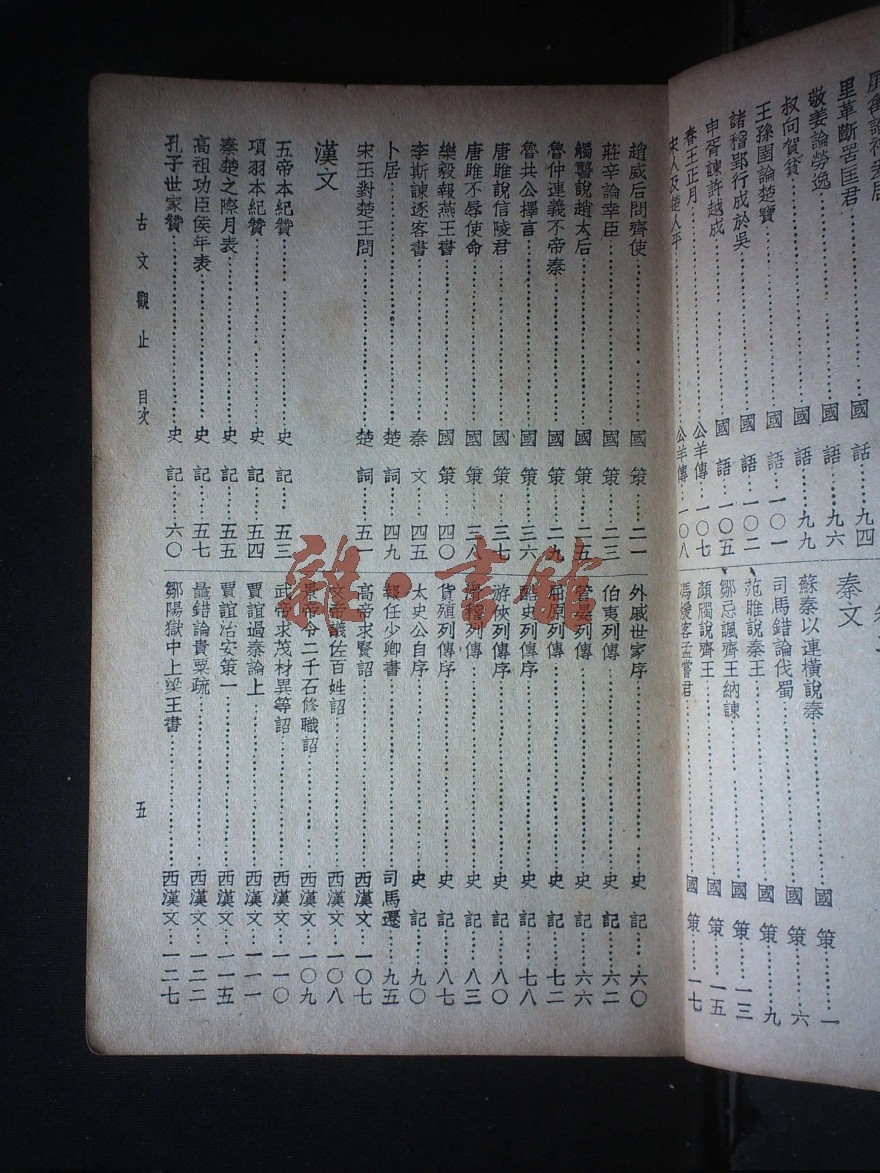 里革斷罟匡君……國語…九六
敬姜論勞逸……國語…九九
叔向賀貧……國語…一〇一
王孫圉論楚寶……國語…一〇二
諸稽郢行成於吳……國語…一〇五
申胥諫許越成……國語…一〇七
春王正月……公羊傳…一〇八
宋人及楚人平……公羊傳
秦文
蘇秦以連橫說秦……國策…一
司馬錯論伐蜀……國策…六
范雎說秦王……國策…九
鄒忌諷齊王納諫……國策…一三
顏斶說齊王……國策…一五
馮煖客孟嘗君……國策…一七
趙威后問齊使……國策…二一
莊辛論幸臣……國策…二三
觸讋說趙太后……國策…二五
魯仲連義不帝秦……國策…二九
魯共公擇言……國策…三六
唐雎說信陵君……國策…三七
唐雎不辱使命……國策…三八
樂毅報燕王書……國策…四〇
李斯諫逐客書……秦文…四五
卜居……楚詞…四九
宋玉對楚王問……楚詞…五一
漢文
五帝本紀贊……史記…五三
項羽本紀贊……史記…五四
秦楚之際月表……史記…五五
高祖功臣侯年表……史記…五七
孔子世家贊……史記…六〇
外戚世家序……史記…六〇
伯夷列傳……史記…六二
管晏列傳……史記…六六
屈原列傳……史記…七二
酷吏列傳序……史記…七八
游俠列傳序……史記…八〇
滑稽列傳……史記…八三
貨殖列傳序……史記…八七
太史公自序……史記…九〇
報任少卿書……司馬遷…九五
高帝求賢詔……西漢文…一〇七
文帝議佐百姓詔……西漢文…一〇八
景帝令二千石修職詔……西漢文…一〇九
武帝求茂材異等詔……西漢文…一一〇
賈誼過秦論上……西漢文…一一一
賈誼治安策一……西漢文…一一五
鼂錯論貴粟疏……西漢文…一二二
鄒陽獄中上梁王書……西漢文…一二七
古文觀止 目次 五
龍·書館